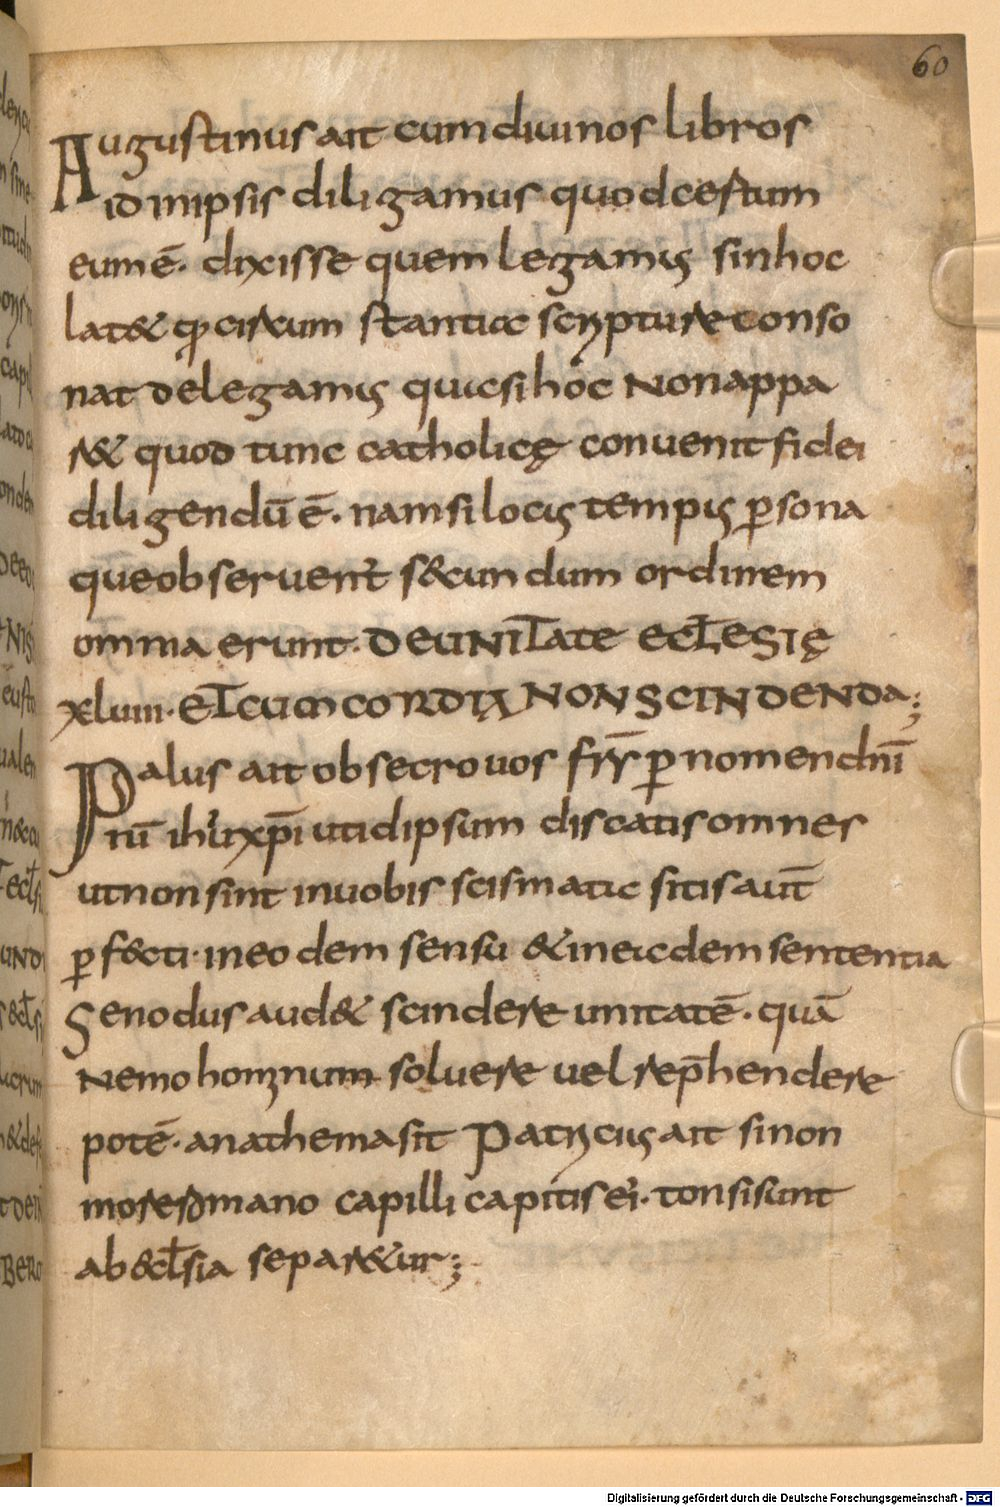 60
Augustinus ait cum diuinos libros
id in ipsis diligamus quod certum
eum ē· dixisse quem legamus sin hoc
lat& qđ circum stantiae scripture conso
nat deo legamus quic si hoc Non appa
r& quod tunc catholicę conuenit fidei
diligendū ē· nam si locis tempis psona
que obseruent s&cundum ordinem
omnia erunt· DE UNITate ECLESIę
xluiii· ET CUM CORDIA NON SCINDENDa;
Palus ait obsecro uos frs p nomen dni
nrī ihu xpi ut id ipsum dicatis omnes
ut non sint in uobis scismatic sitis aut̄
pf&cti· in eodem sensu & in eicdem sententia
Senodus aud& scindere unitatē· quā
Nemo hominum soluere uel rephendere
potē· anathema sit Patricius ait si non
more romano capilli capitis ei· tonsi sunt
ab &clsia separ&ur;
Digitalisierung gefördert durch die Deutsche Forschungsgemeinschaft - DFG